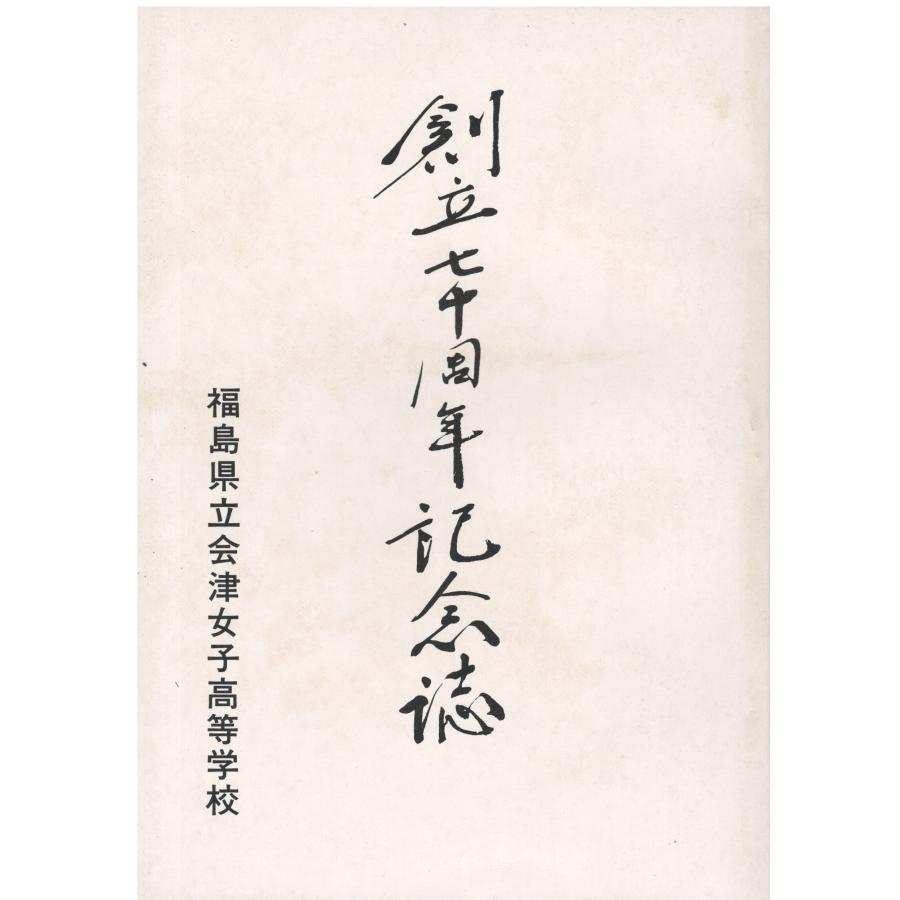 創立七十周年記念誌
福島県立会津女子高等学校